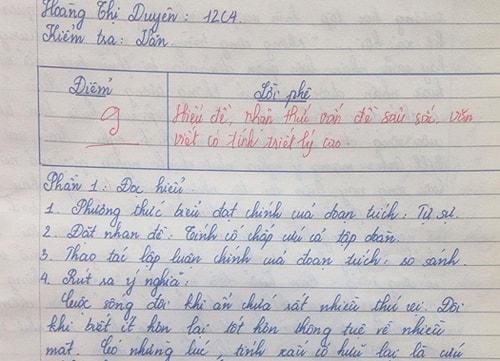 Hoàng Thị Duyên : 12C4.
Kiểm tra : Văn.
Điểm
Lời phê
9
Hiểu đề, nhận thức vấn đề sâu sắc, văn
viết có tính triết lý cao.
Phần 1 : Đọc hiểu.
1. Phương thức biểu đạt chính của đoạn trích : Tự sự.
2. Đặt nhan đề : Tính cố chấp cứu cả tập đoàn.
3. Thao tác lập luận chính của đoạn trích : so sánh.
4. Rút ra ý nghĩa :
Cuộc sống đôi khi ẩn chứa rất nhiều thú vị. Đôi
khi biết ít hơn lại tốt hơn thông tuệ về nhiều
mặt. Có những lúc tính xấu cố hữu lại là cứu